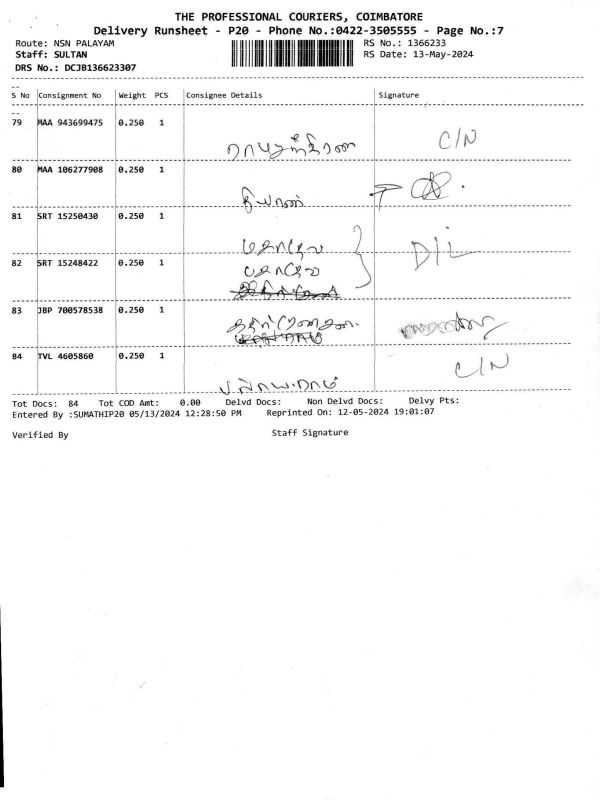 THE PROFESSIONAL COURIERS, COIMBATORE
Delivery Runsheet - P20 - Phone No.:0422-3505555 - Page No.:7
Route: NSN PALAYAM RS No.: 1366233
Staff: SULTAN RS Date: 13-May-2024
DRS No.: DCJB136623307
S No Consignment No Weight PCS Consignee Details Signature
79 MAA 943699475 0.250 1 C/N
80 MAA 106277908 0.250 1
81 SRT 15250430 0.250 1
D/L
82 SRT 15248422 0.250 1
83 JBP 700578538 0.250 1
84 TVL 4605860 0.250 1 C/N
Tot Docs: 84 Tot COD Amt: 0.00 Delvd Docs: Non Delvd Docs: Delvy Pts:
Entered By :SUMATHIP20 05/13/2024 12:28:50 PM Reprinted On: 12-05-2024 19:01:07
Verified By Staff Signature